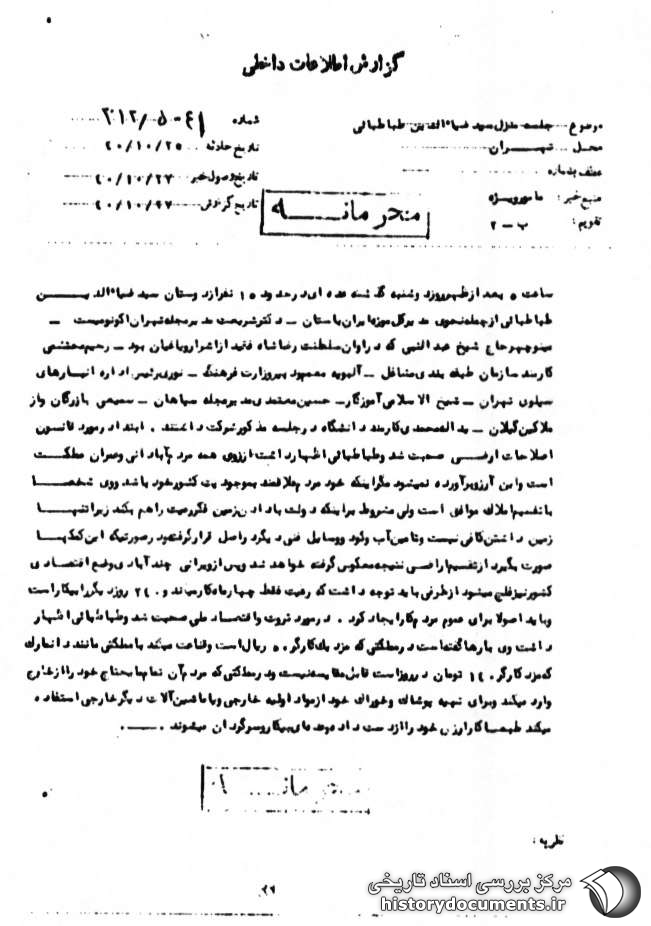 گزارش اطلاعات داخلی
موضوع جلسه منزل سید ضیاءالدین طباطبائی
شماره ۳۱۲/۵-۴۱
محل تهران
تاریخ حادثه ۴۰/۱۰/۲۵
عطف بشماره
تاریخ وصول خبر ۴۰/۱۰/۲۷
منبع خبر: مامور ویژه
تاریخ گزارش
تقویم: ب - ۲
محرمانه
ساعت ۵ بعد از ظهر روز دوشنبه گذشته عده ای در حدود ۱۵ نفر از دوستان سید ضیاءالدین
طباطبائی از جمله نحوی مدیر کل موزه ایران باستان - دکتر شریعت مدیر مجله تهران اکونومیست -
منوچهر حاج شیخ عبدالنبی که در اوان سلطنت رضا شاه فقید از اشرار و یاغیان بود - رحیم محتشمی
کارمند سازمان طبقه بندی مشاغل - آلبویه معمود پیر وزارت فرهنگ - نوری رئیس اداره انبارهای
سیلوی تهران - شیخ الاسلامی آموزگار - حسین معتمدی مدیر مجله سپاهان - سمیعی بازرگان و از
ملاکین گیلان - یداله محمدی کارمند دانشگاه در جلسه مذکور شرکت داشتند . ابتدا در مورد قانون
اصلاحات ارضی صحبت شد و طباطبائی اظهار داشت آرزوی همه مردم آبادانی و عمران مملکت
است و این آرزو برآورده نمیشود مگر اینکه خود مردم علاقمند بموجودیت کشور خود باشد و وی شخصا
با تقسیم املاک موافق است ولی مشروط بر اینکه دولت با دادن زمین فکر رعیت را هم بکند زیرا تنها
زمین داشتن کافی نیست و تامین آب و کود و وسایل فنی دیگر در اصل قرار گرفته و در صورتیکه این کمکها
صورت بگیرد از تقسیم اراضی نتیجه معکوس گرفته خواهد شد و پس از ویرانی چند آبادی وضع اقتصادی
کشور نیز فلج میشود از طرفی باید توجه داشت که رعیت فقط چهار ماه کار میکند و ۲۴۰ روز دیگر را بیکار است
و باید اصولا برای عموم مردم کار ایجاد کرد . در مورد ثروت و اقتصاد ملی صحبت شد و طباطبائی اظهار
داشت وی بارها گفته است در مملکتی که مزد یک کارگر ۵۰ ریال است و قناعت میکند با مملکتی مانند دانمارک
که مزد کارگر ۱۴۰ تومان در روز است قابل مقایسه نیست و در مملکتی که مردم آن تمام مایحتاج خود را از خارج
وارد میکند و برای تهیه پوشاک و خوراک خود از مواد اولیه خارجی و یا ماشین آلات دیگر خارجی استفاده
میکند طبعا کار ارزش خود را از دست داده و عده ای بیکار و سرگردان میشوند .
محرمانه
نظریه :
مرکز بررسی اسناد تاریخی
historydocuments.ir